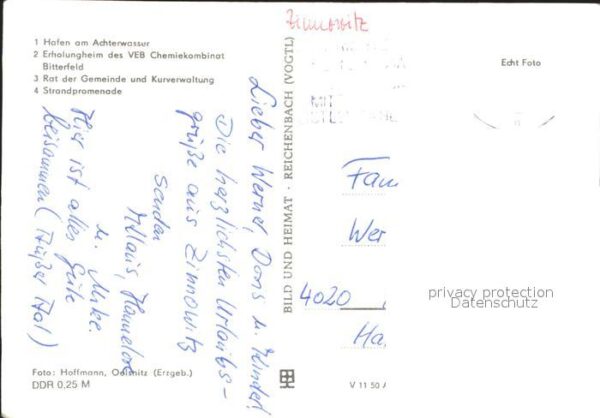 Zinnowitz
1 Hafen am Achterwasser
2 Erholungheim des VEB Chemiekombinat
Bitterfeld
3 Rat der Gemeinde und Kurverwaltung
4 Strandpromenade
Echt Foto
MIT
Lieber Werner, Doris u. Kinder!
Die herzlichsten Urlaubs-
grüße aus Zinnowitz
senden
Klaus, Hannelore
u. Mike.
Hier ist alles Gute
beisammen (außer Aal)
BILD UND HEIMAT · REICHENBACH (VOGTL)
Fam
Wer
4020
Ha
privacy protection
Datenschutz
Foto: Hoffmann, Oelsnitz (Errzgeb.)
DDR 0,25 M
V 11 50